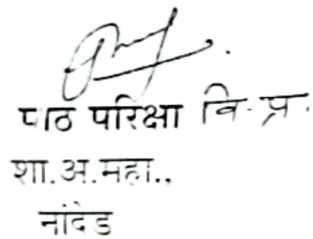 पाठ परिक्षा वि. प्र.
शा.अ.महा.,
नांदेड